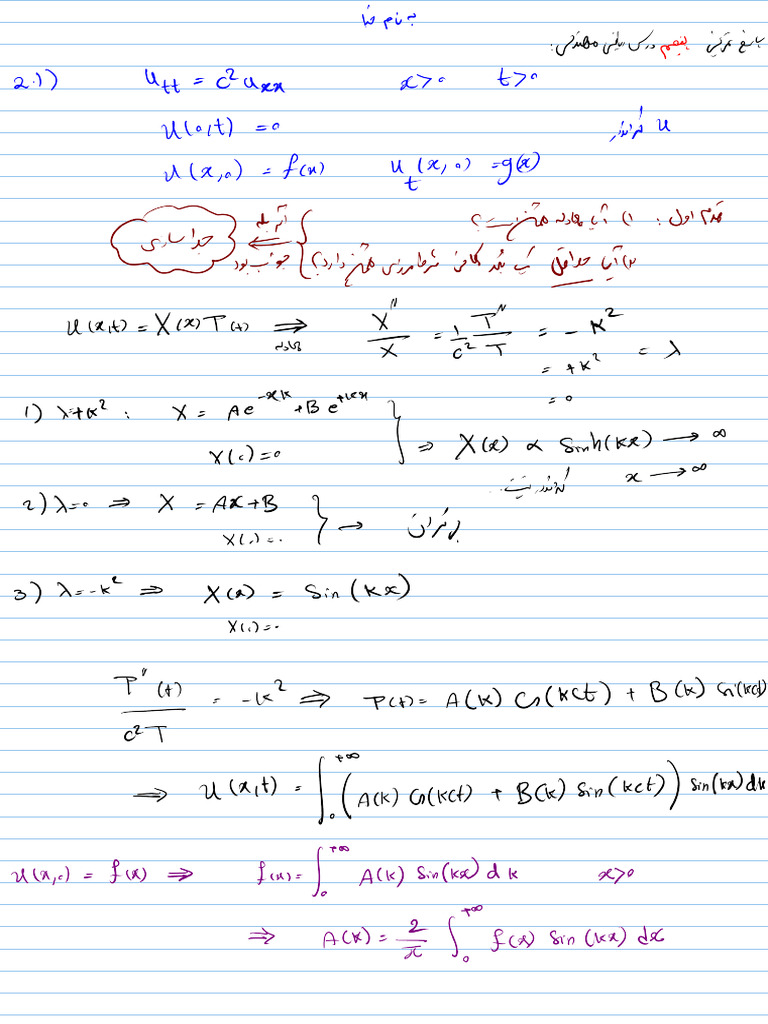 به نام خدا
پاسخ تمرین پنجم درس ریاضی مهندسی:
2.1) u_tt = c² u_xx x>0 t>0
u(0,t) = 0 u کراندار
u(x,0) = f(x) u_t(x,0) = g(x)
قدم اول: 1) آیا معادله همگن است؟
2) آیا حداقل یک بعد کافی شرط مرزی همگن دارد؟ } اگر بله جواب بود ⇐ جداسازی
u(x,t) = X(x)T(t) ⇒ معادله X''/X = 1/c² T''/T = -k²
= +k² = λ
= 0
1) λ=+k² : X = Ae^{-xk} + Be^{+kx}
X(0)=0 } ⇒ X(x) ∝ Sinh(kx) → ∞
x → ∞
کراندار نیست.
2) λ=0 ⇒ X = Ax+B
X(0)=0 } → بی‌کران
3) λ=-k² ⇒ X(x) = Sin(kx)
X(0)=0
T''(t)/c²T = -k² ⇒ T(t) = A(k) Cos(kct) + B(k) Sin(kct)
⇒ u(x,t) = ∫₀^{+∞} (A(k) Cos(kct) + B(k) Sin(kct)) Sin(kx) dk
u(x,0) = f(x) ⇒ f(x) = ∫₀^{+∞} A(k) Sin(kx) dk x>0
⇒ A(k) = 2/π ∫₀^{+∞} f(x) Sin(kx) dx